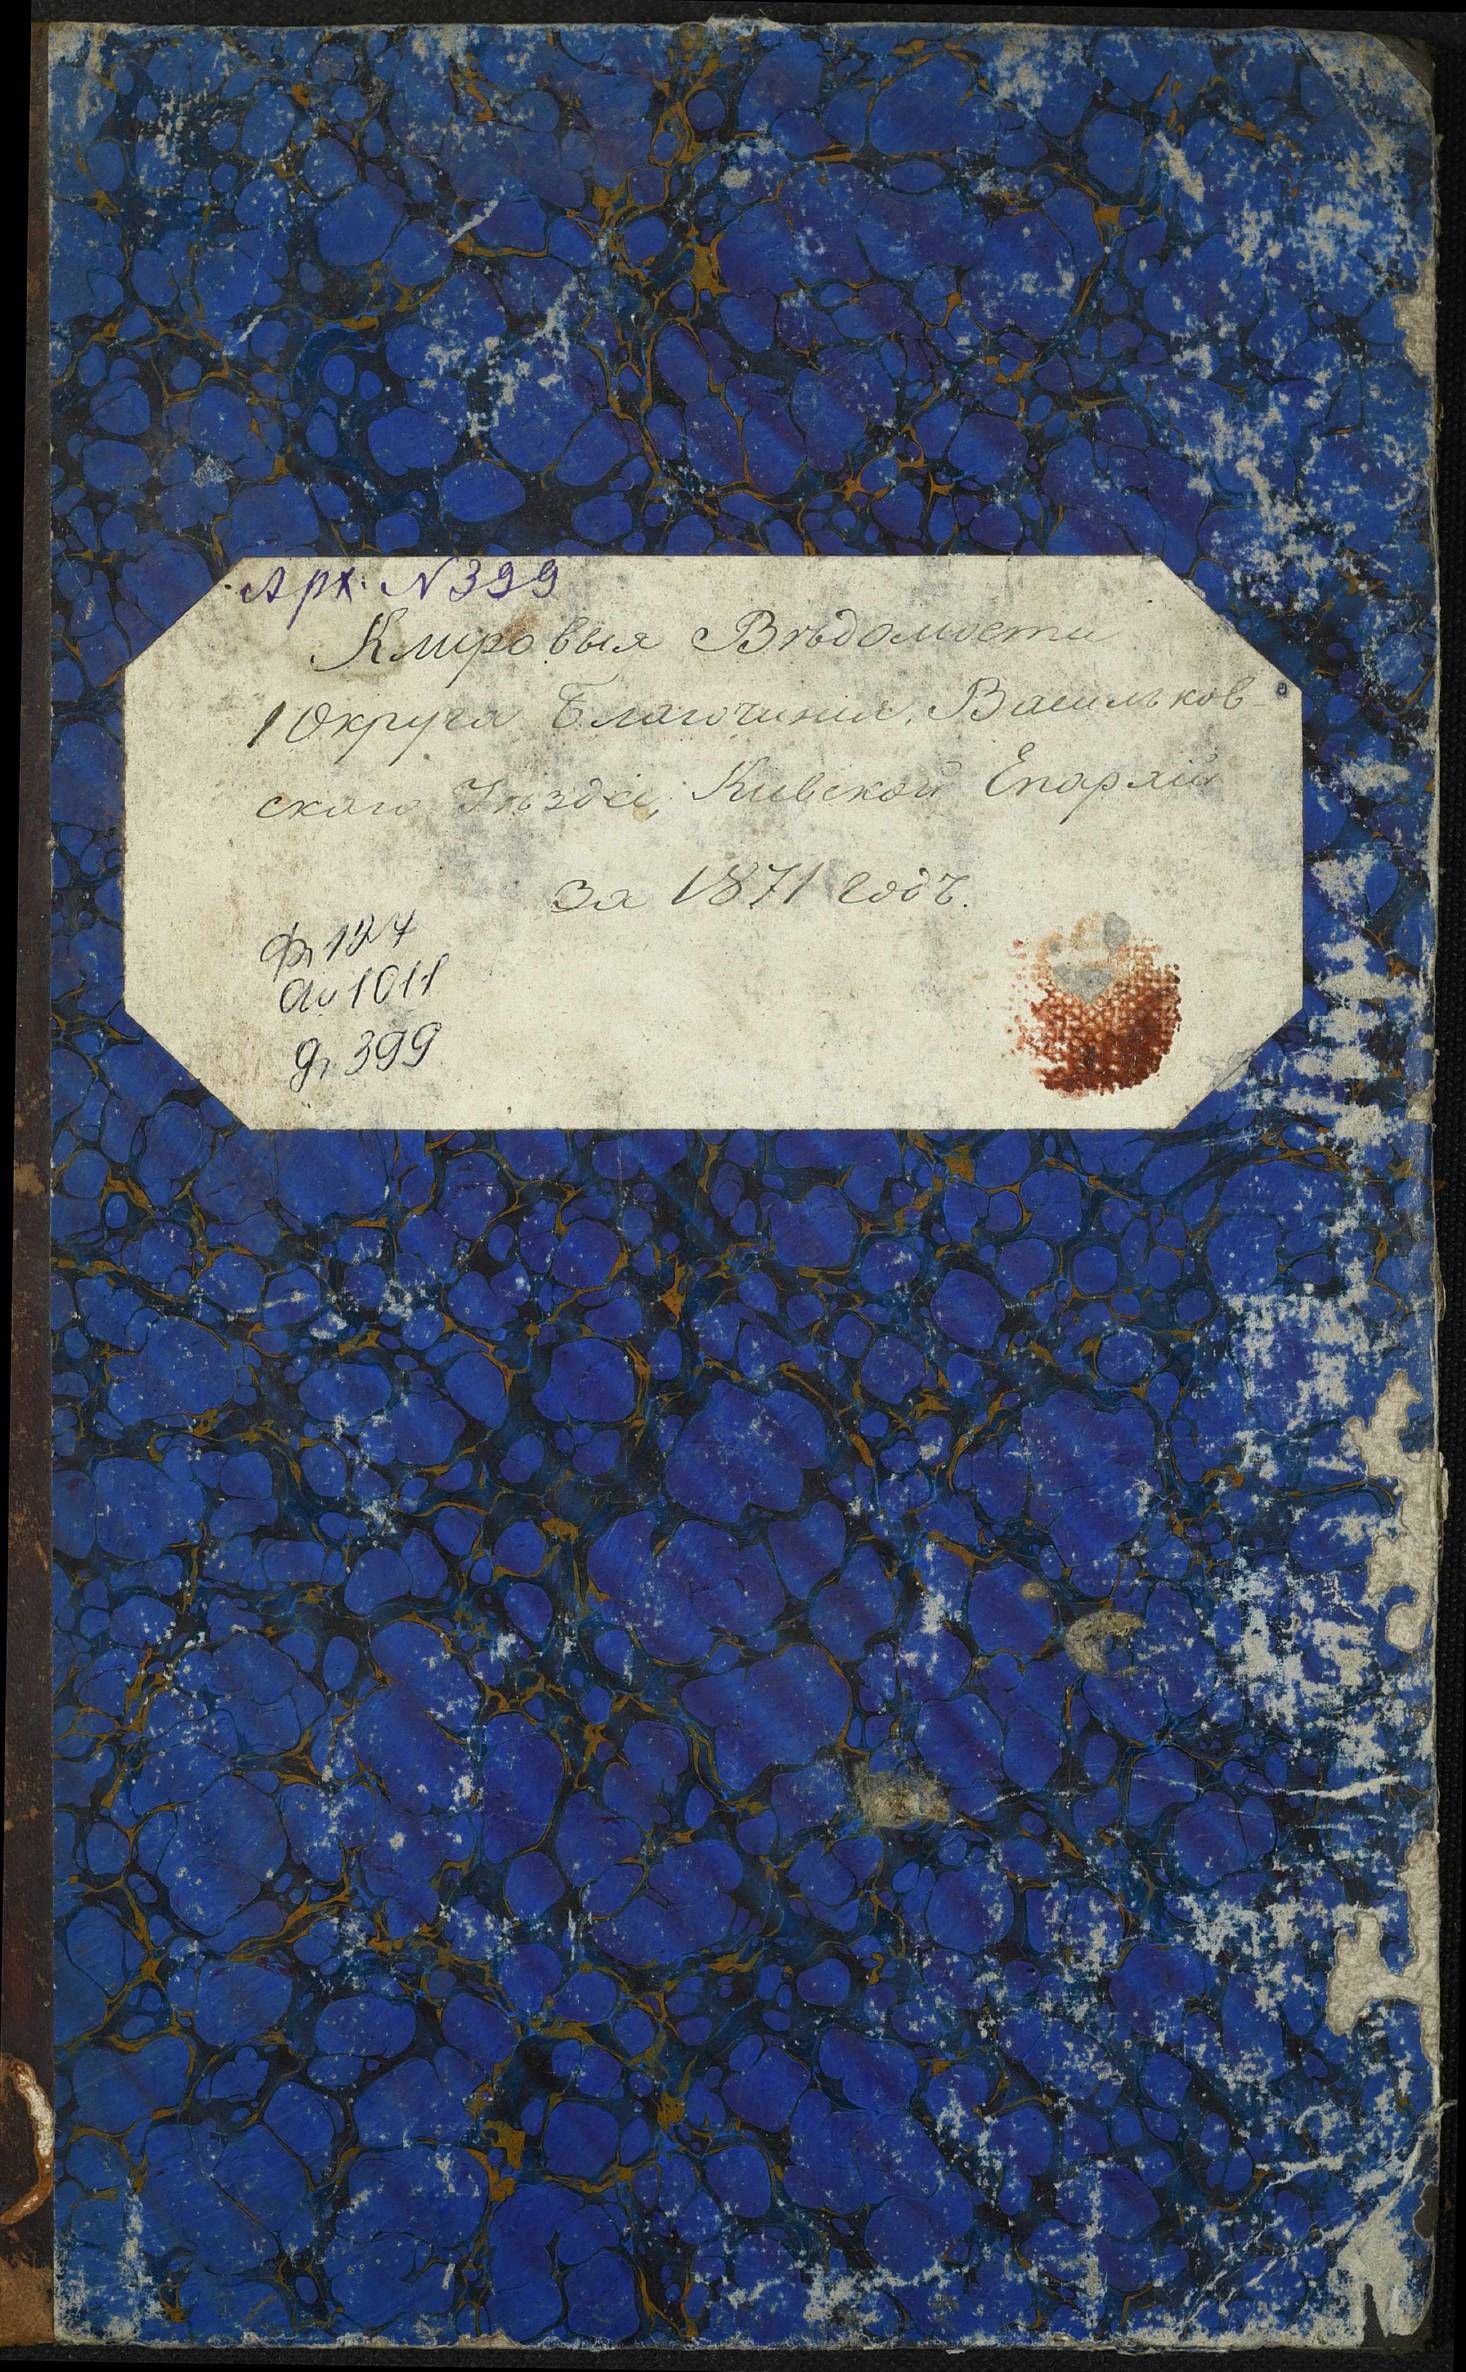 Арх. N 399
Клировыя Вѣдомости
1 Округа Благочинія, Васильков-
скаго Уѣзда, Кіевской Епархіи
за 1871 годъ.
ф, 127
оп 1011
д, 399